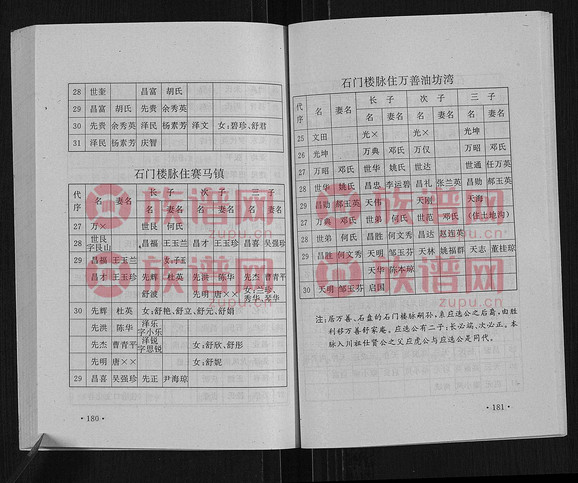 28 世奎 昌富 胡氏
29 昌富 胡氏 先贵 余秀英
30 先贵 余秀英 泽民 杨素芳 泽文 女:碧珍、舒君
31 泽民 杨素芳 庆智
石门楼脉住赛马镇
代序 名 妻名 长子 次子 三子
名 妻名 名 妻名 名 妻名
27 万× 世良 何氏
28 世良字良山 昌福 王玉兰 昌才 王玉珍 昌喜 吴强珍
29 昌福 王玉兰 女:子玉
昌才 王玉珍 先辉 杜英 先洪 陈华 先杰 曹青平
舒波 先明 唐×× 女:兰珍、秀华、琴华
30 先辉 杜英 女:舒艳、舒立、舒元、舒娟
先洪 陈华 泽乐字小乐
先杰 曹青平 泽锐字思锐 女:舒欣、舒彤
先明 唐×× 女:舒妮
29 昌喜 吴强珍 先正 尹海琼
·180·
石门楼脉住万善油坊湾
代序 名 妻名 长子 次子 三子
名 妻名 名 妻名 名 妻名
25 文田 光× 光× 光坤
26 光坤 万典 邓氏 万仪 万昭 邓氏
27 万昭 邓氏 世华 姚氏 世达 世通 任万英
28 世华 姚氏 昌忠 李运碧 昌礼 张兰英 昌勋 郝玉英
29 昌勋 郝玉英 天伟 天刚 天海
27 万典 邓氏 世弟 何氏 世范 邓氏 (住土地沟)
28 世弟 何氏 昌胜 何文秀 昌达 赵连英
29 昌胜 何文秀 天明 邹玉芬 天林 姚福群 天志 董桂琼
天华 陈本琼
30 天明 邹玉芬 启国
注:居万善、石盘的石门楼脉嗣孙,系应选公之后裔,由胜利移万善舒家庵。应选公有二子:长必端、次必正。本脉入川祖仕贤公之父应虎公与应选公是同代。
·181·
族谱网
zupu.cn
族谱网
zupu.cn